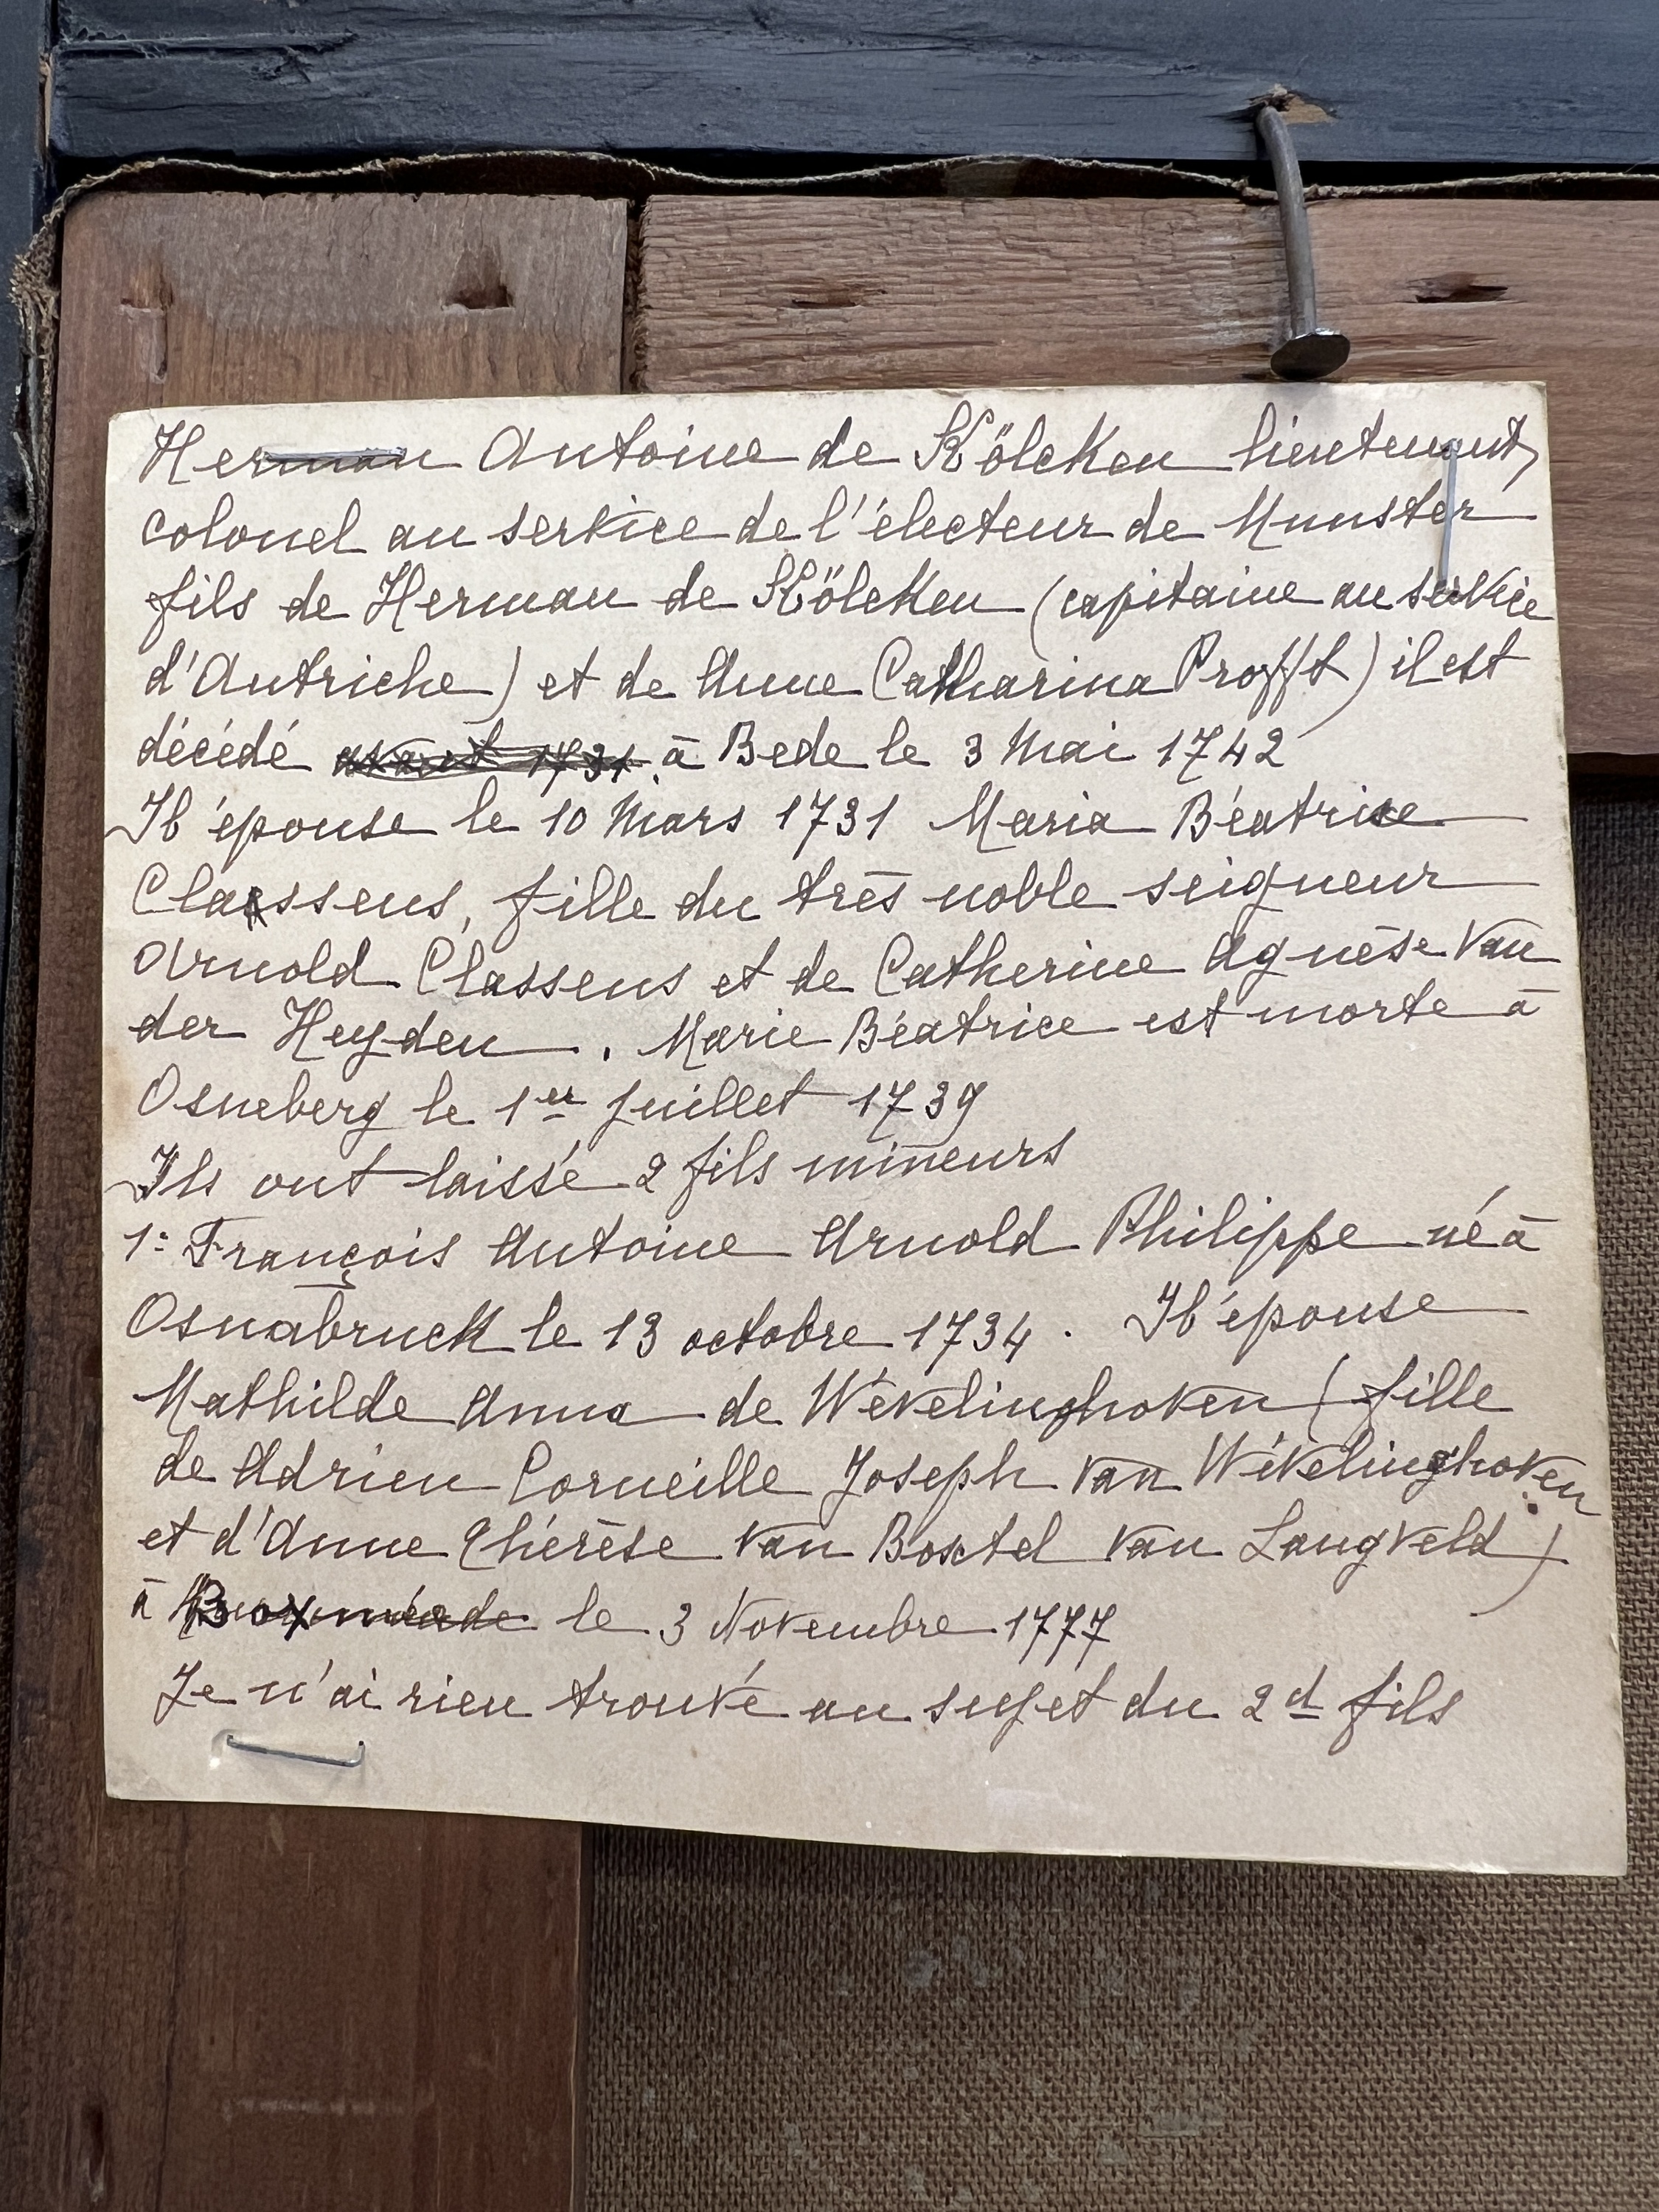 Herman Antoine de Kölcken lieutenant
colonel au service de l'électeur de Munster
fils de Herman de Kölcken (capitaine au service
d'Autriche) et de Anne Catharina Profft) il est
décédé avant 1731. à Bede le 3 Mai 1742
Il épouse le 10 Mars 1731 Maria Béatrice
Classens, fille du très noble seigneur
Arnold Classens et de Catherine Agnèse Van
der Heyden. Marie Béatrice est morte à
Osneberg le 1er Juillet 1739
Ils ont laissé 2 fils mineurs
1: François Antoine Arnold Philippe né à
Osnabruck le 13 octobre 1734. Il épouse
Mathilde Anna de Wévelinghoven (fille
de Adrien Corneille Joseph Van Wévelinghoven
et d'Anne Thérèse Van Boxtel Van Langveld)
à le 3 Novembre 1777
Je n'ai rien trouvé au sujet du 2d fils